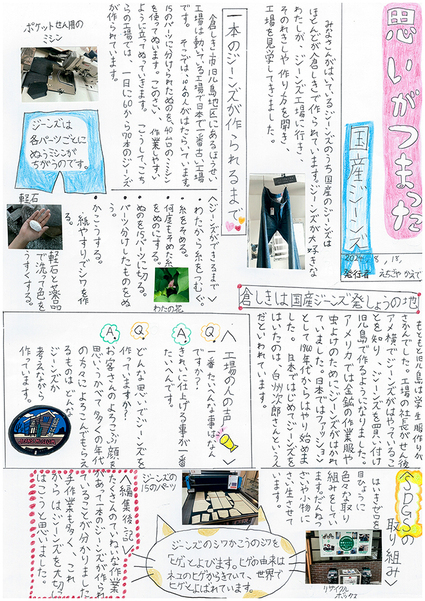 思いがつまった
国産ジーンズ
発行者
みなさんがはいているジーンズのうち国産のジーンズは
ほとんどが倉しきで作られています。ジーンズが大好きな
わたしが、ジーンズ工場に行き、
そのれきしや作り方を聞き、
工場を見学してきました。
一本のジーンズが作られるまで
倉しき市児島地区にあるほうせい
工場は動いている工場で日本で一番古い工場
です。そこでは、16人の人がはたらいています。
15のパーツに分けられたぬのを、40台のミシン
を使ってぬいます。このさい、作業しやすい
ように立ってぬっていきます。こうして、こち
らの工場では、一日に60から70本のジーンズ
が作られています。
ポケットせん用の
ミシン
ジーンズは
各パーツごとに
ぬうミシンが
ちがうのです。
<ジーンズができるまで>
・わたから糸をつむぐ。
・糸をそめる。
・何度もそめた糸
をぬのにする。
・ぬのを15パーツに切る。
・パーツ分けしたものをぬ
う。
・かこうする。
紙やすりでシワを作
る。
軽石と薬品
で洗って色を
うすくする。
わたの花
軽石
倉しきは国産ジーンズ発しょうの地
もともと児島は学生服作りが
さかんでした。工場の社長がせん後
アメ横でジーンズがはやっているこ
とを知り、ジーンズを買い付け
児島で作るようになりました。
アメリカでは金鉱の作業服や
虫よけのためにジーンズがはかれ
ていました。日本ではファッション
として1970年代からはやり始めま
した。日本ではじめてジーンズを
はいたのは、白州次郎さんという人
だといわれています。
<工場の人の声>
Q.
一番たいへんな事はなん
ですか?
A.
きれいに仕上げる事が一番
たいへんです。
Q.
どんな思いでジーンズを
作っていますか?
A.
お客さんのよろこぶ顔を
思いうかべて、多くの年代
のちがう人によろこんでもらえ
るものは、どんな
ジーンズか
考えながら
作っています。
<SDGsの取り組み>
はいきぶつを
目ひょうに
色々な取り
組みをしてい
ます。
さいり用に
さい生させて
います。
リサイクル
ボックス
ジーンズの
15のパーツ
ジーンズのシワかこうのシワを
「ヒゲ」とよびます。ヒゲの由来は
ネコのヒゲからきていて、世界で
ヒゲとよばれています。
<編集後記>
作業
があって一本のジーンズが作られ
てることが分かりました。
手作業も多く、これ
からはジーンズを大切に
はこうと思いました。